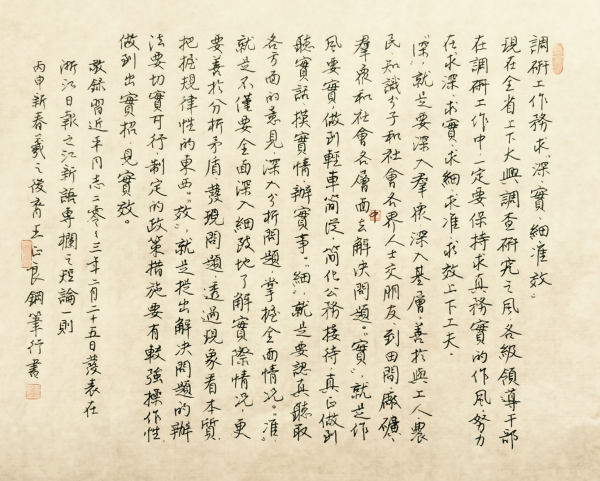 調研工作務求“深、實、細、準、效”
現在全省上下大興調查研究之風，各級領導干部
在調研工作中，一定要保持求真務實的作風，努力
在求深、求實、求細、求准、求效上下工夫。
“深”，就是要深入羣衆，深入基層，善於與工人、農
民、知識分子和社會各界人士交朋友，到田間、廠礦、
羣衆和社會各層面去解决問題。“實”，就是作
風要實，做到輕車簡從，簡化公務接待，真正做到
聽實話、摸實情、辦實事。“細”，就是要認真聽取
各方面的意見，深入分析問題，掌握全面情况。“准”，
就是不僅要全面深入細致地了解實際情况，更
要善於分析矛盾、發現問題，透過現象看本質，
把握規律性的東西。“效”，就是提出解决問題的辦
法要切實可行，制定的政策措施要有較强操作性，
做到出實招、見實效。
敬録習近平同志二〇〇三年二月二十五日發表在
浙江日報之江新語專欄之短論一則
丙申新春羲之後裔王正良鋼筆行書